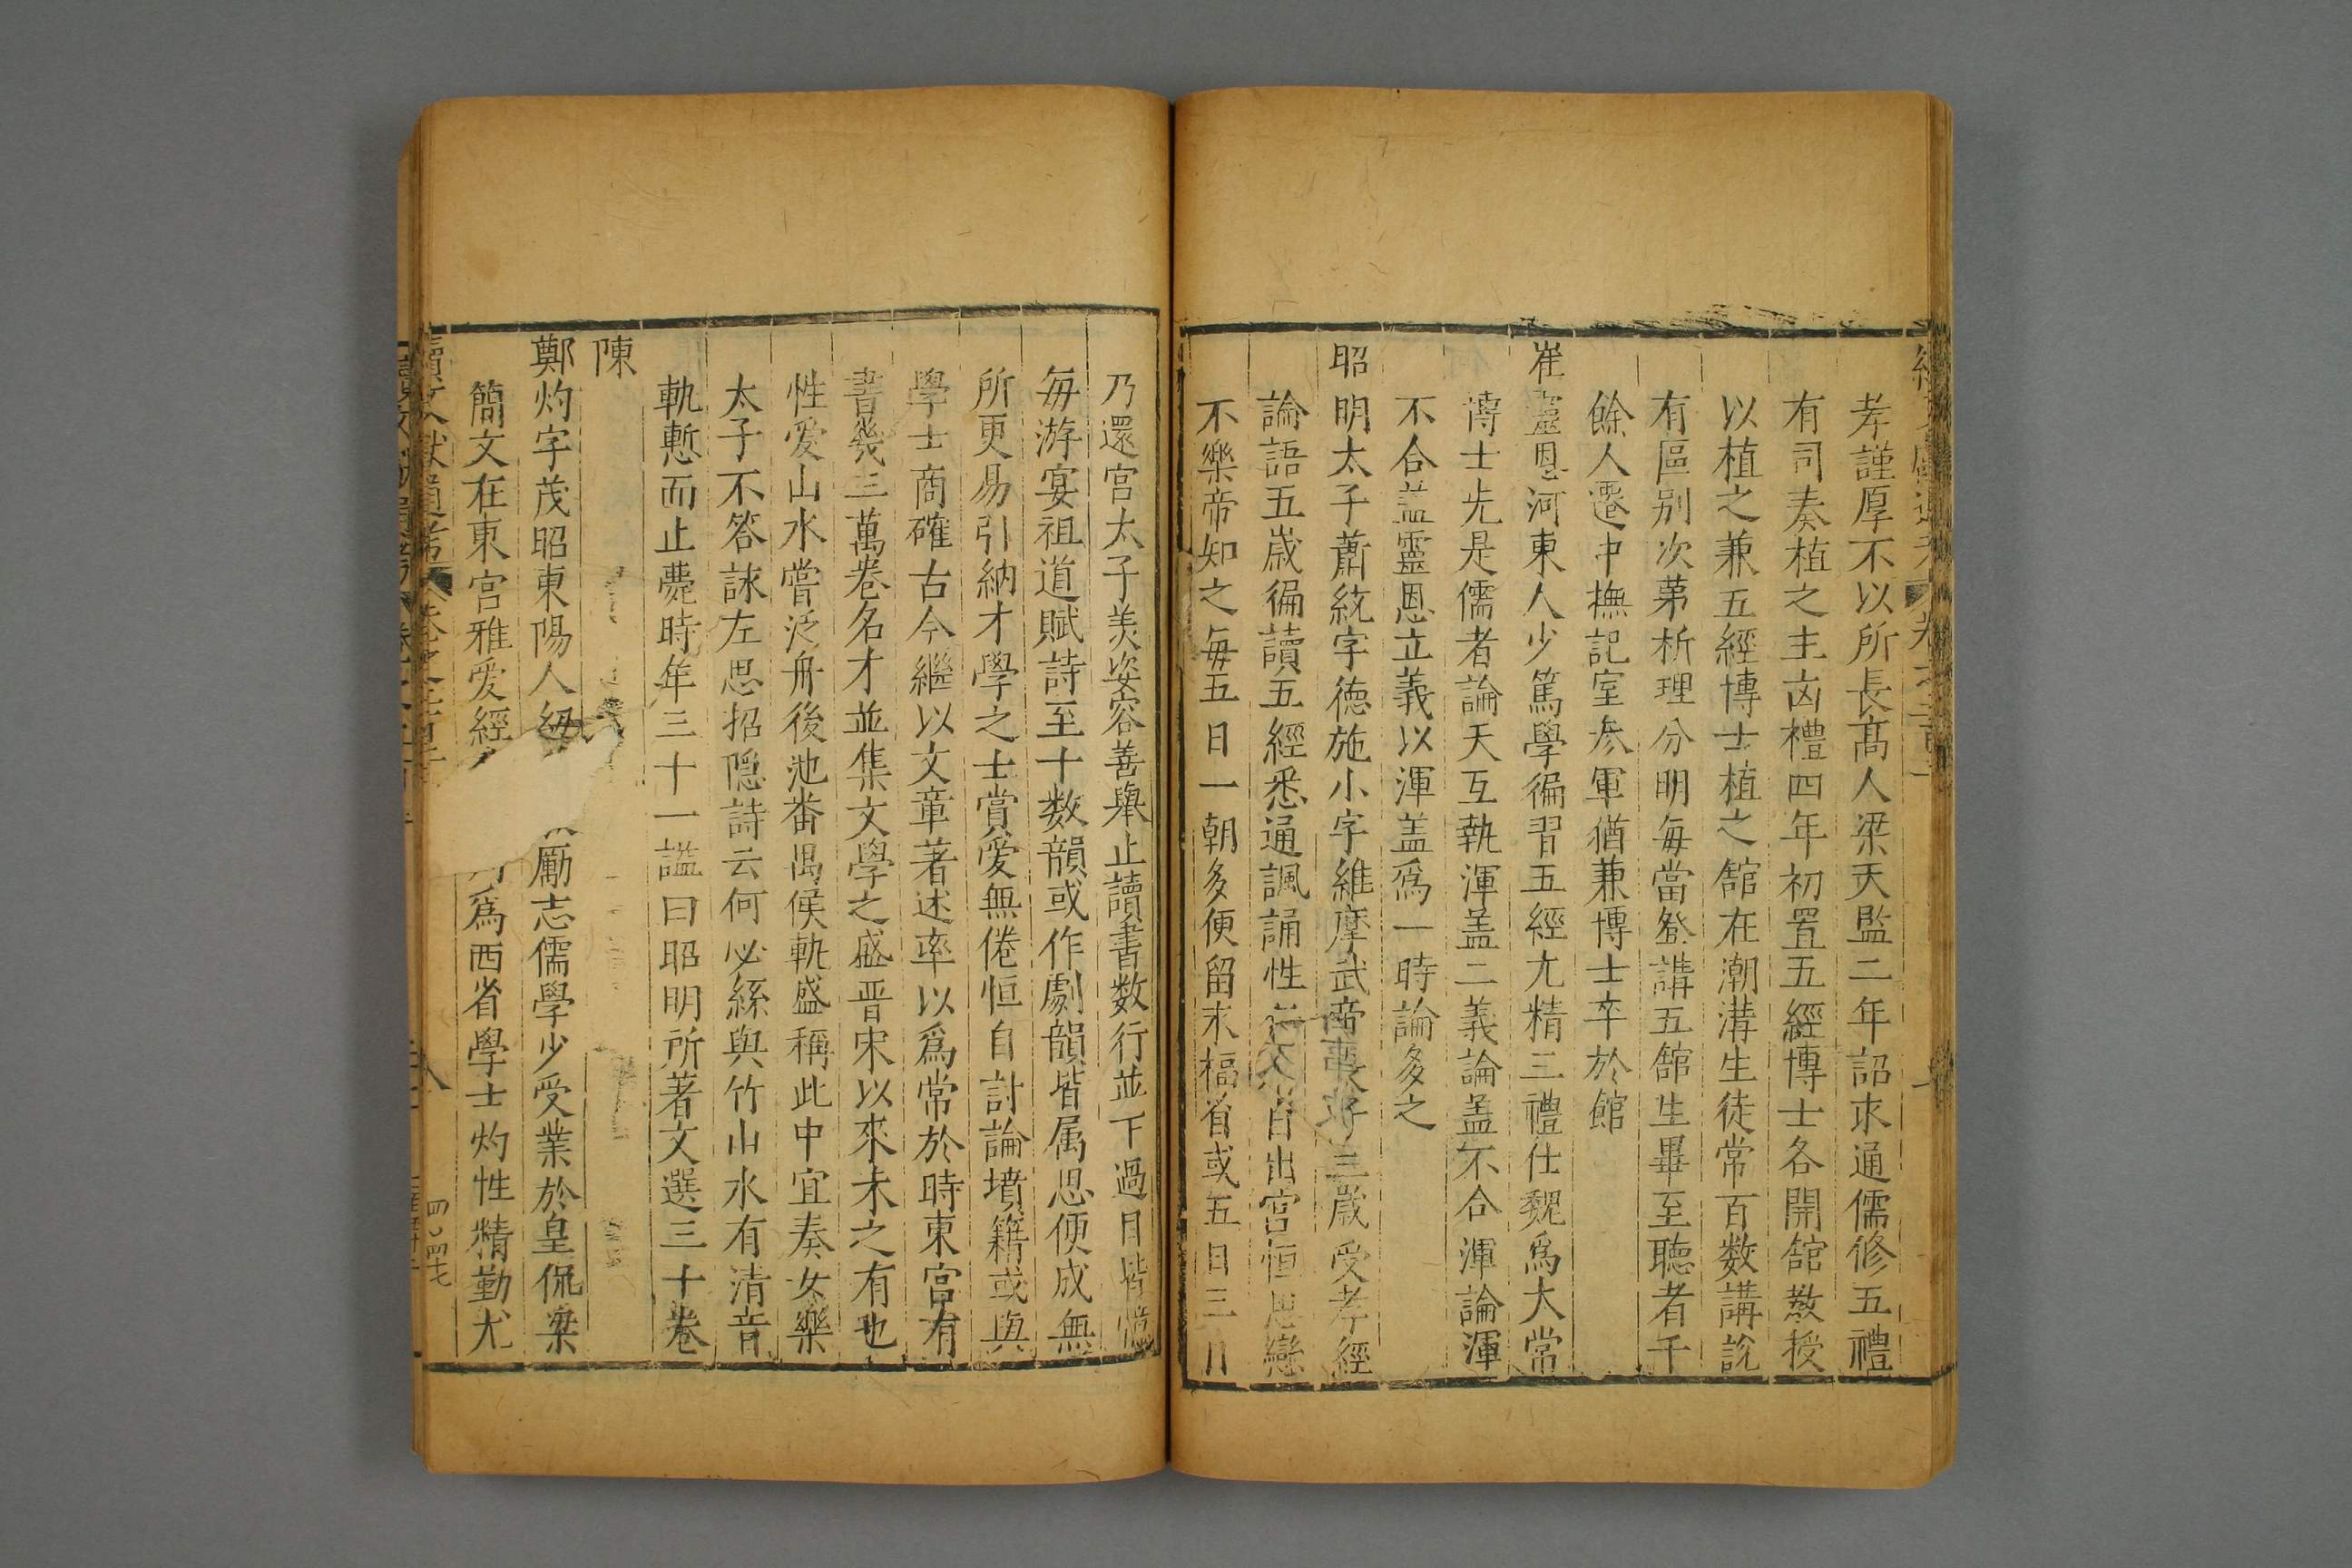 孝謹厚不以所長髙人梁天監二年詔求通儒修五禮
有司奏植之主凶禮四年初置五經博士各開舘教授
以植之兼五經博士植之舘在潮溝生徒常百数講說
有區别次第析理分明每當登講五舘生畢至聽者千
餘人遷中撫記室参軍猶兼博士卒於館
崔靈恩河東人少篤學徧習五經尤精三禮仕魏爲大常
博士先是儒者論天互執渾盖二義論盖不合渾論渾
不合盖靈恩立義以渾盖爲一時論多之
昭明太子蕭統字徳施小字維摩武帝長子三歲受孝經
論語五歲徧讀五經悉通諷誦性自出宮恒思戀
不樂帝知之毎五日一朝多便留永福省或五日三日
乃還宮太子美姿容善舉止讀書数行並下過目皆憶
毎游宴祖道賦詩至十数韻或作劇韻皆属思便成無
所更易引納才學之士賞愛無倦恒自討論墳籍或與
學士商確古今繼以文章著述率以爲常於時東宮有
書幾三萬卷名才並集文學之盛晋宋以來未之有也
性愛山水嘗泛舟後池番禺侯軌盛稱此中宜奏女樂
太子不答詠左思招隠詩云何必絲與竹山水有清音
軌慙而止薨時年三十一謚曰昭明所著文選三十卷
陳
鄭灼字茂昭東陽人幼厲志儒學少受業於皇侃梁
簡文在東宮雅爱經爲西省學士灼性精勤尤